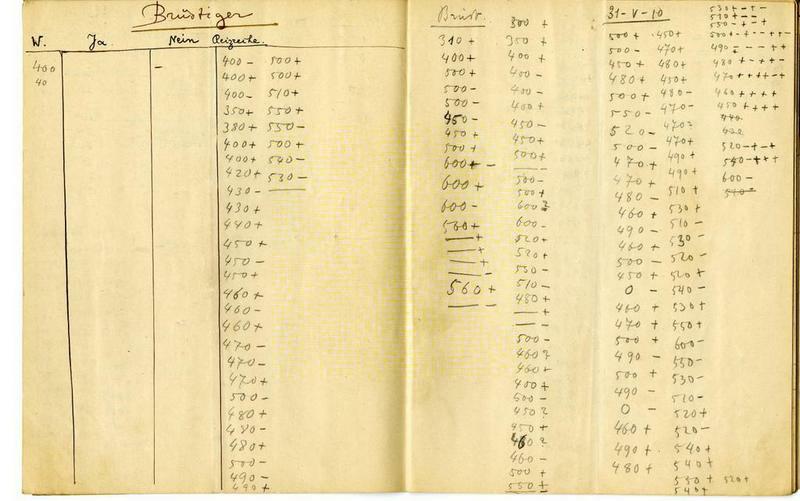 Brüstiger
W. Ja Nein Reizreihe.
400
40
–
400 –
400 +
400 –
350 +
380 +
400 +
400 +
420 +
430 –
430 +
440 +
450 +
450 –
450 +
460 +
460 –
460 +
470 –
470 –
470 +
500 –
480 +
480 –
480 +
500 –
490 –
490 +
500 +
500 +
510 +
550 +
550 –
500 +
540 –
530 –
Brüst.
310 +
400 +
500 +
500 –
500 –
450 –
450 +
500 +
600 + –
600 +
600 –
560 +
— +
— +
— +
— –
560 +
— –
300 +
350 +
400 +
400 –
400 –
400 +
450 –
450 +
500 +
—
500 –
500 +
600 ?
600 –
520 +
520 +
550 –
510 –
480 +
— +
— –
500 –
460 ?
460 +
400 +
600 –
450 ?
450 +
460 ?
460 –
500 +
550 +
31–V–10
500 +
500 –
450 +
480 +
500 +
550 –
520 –
500 –
470 +
470 +
480 –
460 +
490 –
460 +
500 –
450 +
0 –
460 +
470 +
500 +
490 –
500 +
490 –
0 –
460 +
490 +
480 +
450 +
470 +
480 +
450 +
480 –
470 –
470 ?
470 +
490 +
490 +
510 +
530 +
510 –
530 –
520 –
520 +
540 –
530 +
550 +
600 –
550 –
530 –
510 –
520 +
520 –
540 +
540 +
530 + 520 +
540 +
530 + – + –
510 + – –
550 – + – +
470 + + + + – +
460 + + + +
450 + + + +
520 – + – +
540 – + + +
600 –
510 –